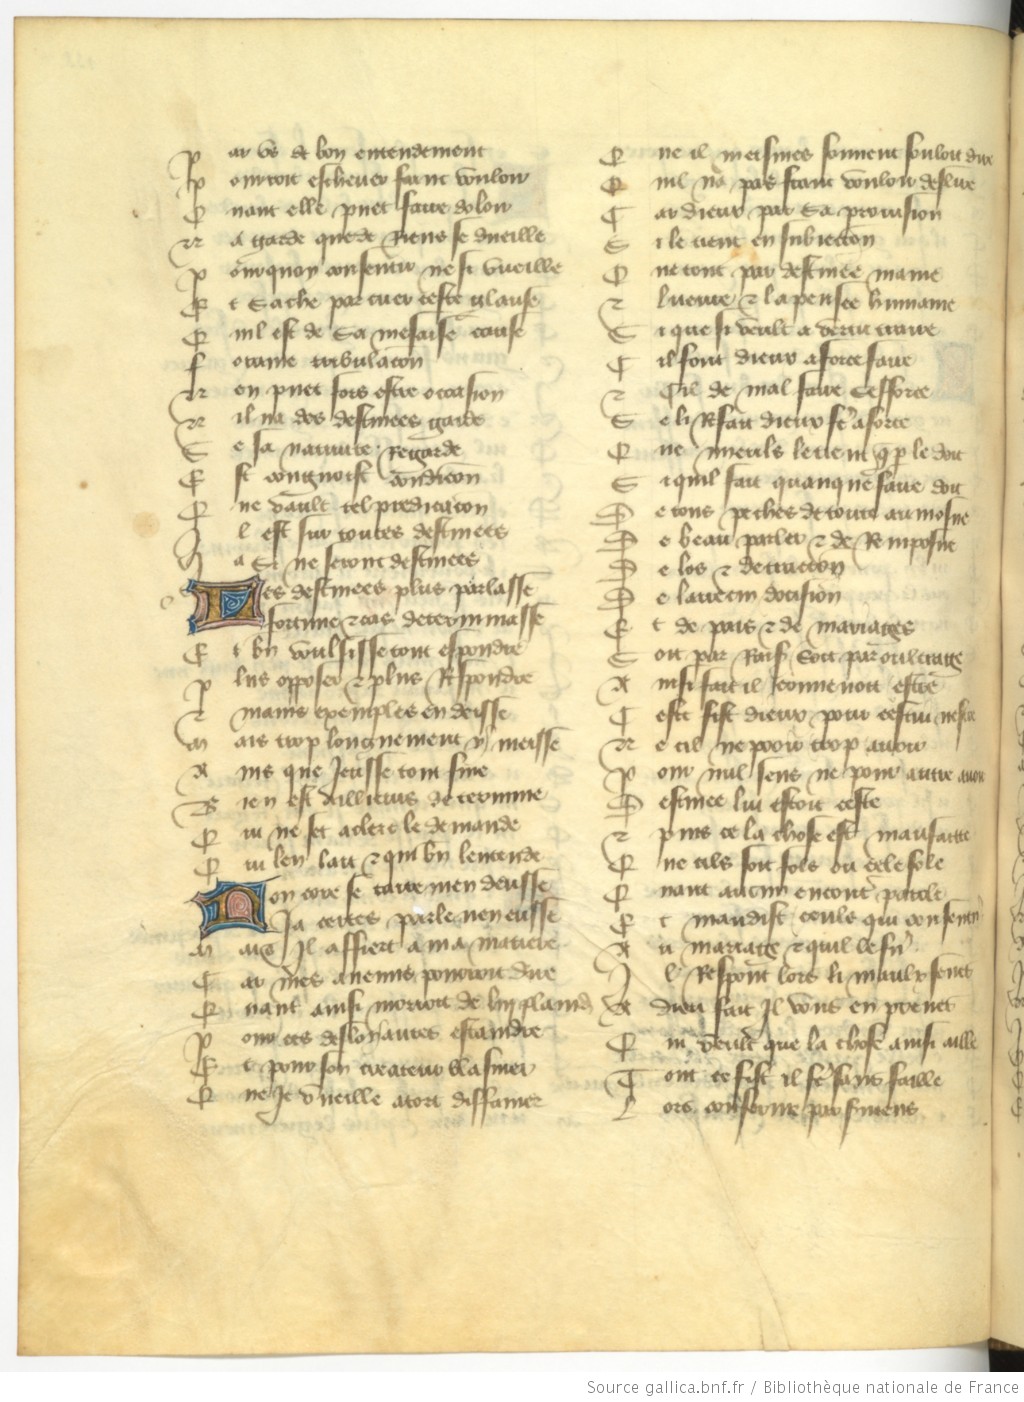 Par vs de bon entendement
Pourroit eschever franc vouloir
Quant elle puet faire doloir
Na garde que de riens se dueille
Pour quoy consentir ne si vueille
Et sache par cuer ceste glause
Quil est de sa mesaise cause
Foraine tribulacion
Nen puet fors estre occasion
Nil na des destinees garde
Se sa nativite regarde
Et congnoist condicion
Que vault tel predicacion
Il est sur toutes destinees
Ja si ne seront destinees
Des destinees plus parlasse
Fortune et cas determinasse
Et bn voulsisse tout espondre
Plus opposer et plus respondre
Et mains exemples en deisse
Mais trop longuement y meisse
Ains que jeusse tout fine
Bien est ailleurs determine
Qui ne scet a clerc le demande
Qui len lait et qui bn lentende
Non core se taire men deusse
Ja certes parle nen eusse
Mais il affiert a ma matiere
Car mes anemis pourroit dire
Quant ainsi morroit de luy plaind
Pour ces desloyautes estaindre
Et pour son createur blasmer
Que je vueille a tort diffamer
Que il meismes souvent souloit dire
Quil na pas franc vouloir deslire
Car dieux par sa provision
Si le tient en subiection
Que tout par destinee maine
Et leuvre et la pensee humaine
Si que si veult a vertu traire
Cil font dieux a force faire
Et cil de mal faire sefforce
Se li refait dieux fe a force
Que mieulx le tient q p le doit
Si quil fait quanque faire doit
De tous pechies de toute aumosne
De beau parler et de ramposne
De los et detraction
De larrecin docision
Et de pais et de mariages
Soit par rais soit par oultrage
Ainsi fait il convenoit estre
Ceste fist dieux pour cestui nestre
Ne cil ne pooir trop avoir
Pour nul sens ne pour autre avoir
Destinee lui estoit ceste
Et puis se la chose est mausaitte
Que cils soit fols ou celle fole
Quant aucun encontr parole
Et maudist ceulx qui consentir
Au mariage et qui le fir
Il respont lors li maulx senes
A dieu fait il vous en prenes
Qui veult que la chose ainsi aille
Tout ce fist il fe sans faille
Lors conferme par sermens
Source gallica.bnf.fr / Bibliothèque nationale de France